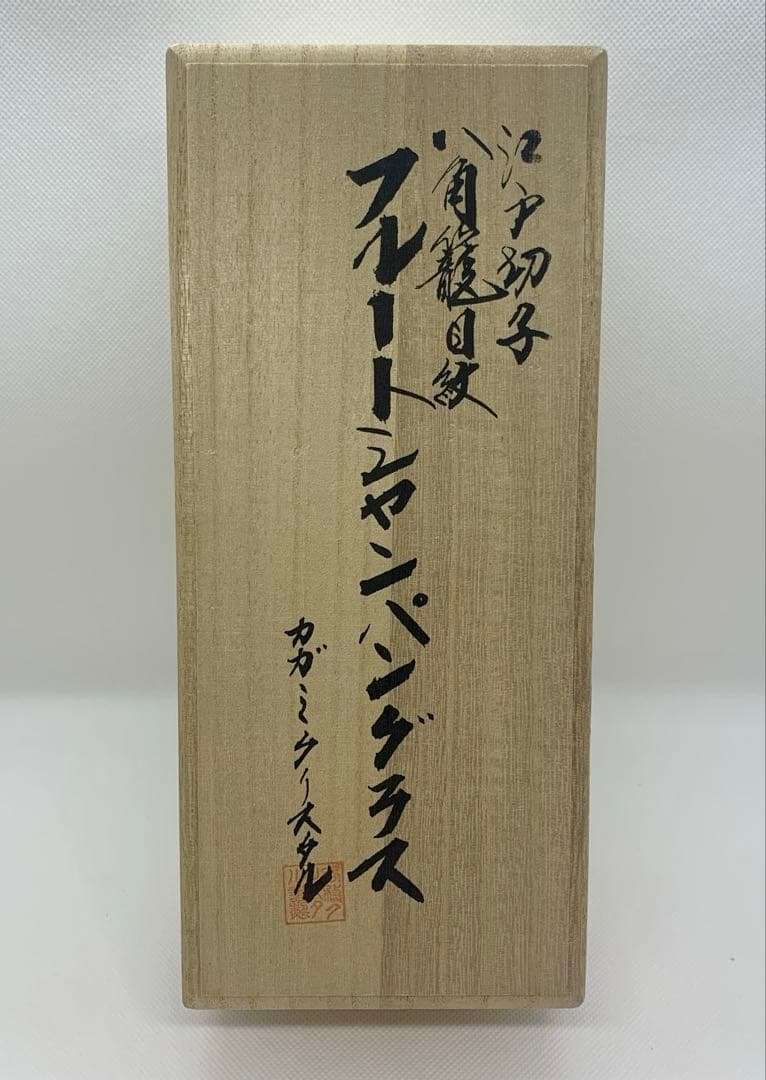 江戸切子
八角籠目紋
フルートシャンパングラス
カガミクリスタル